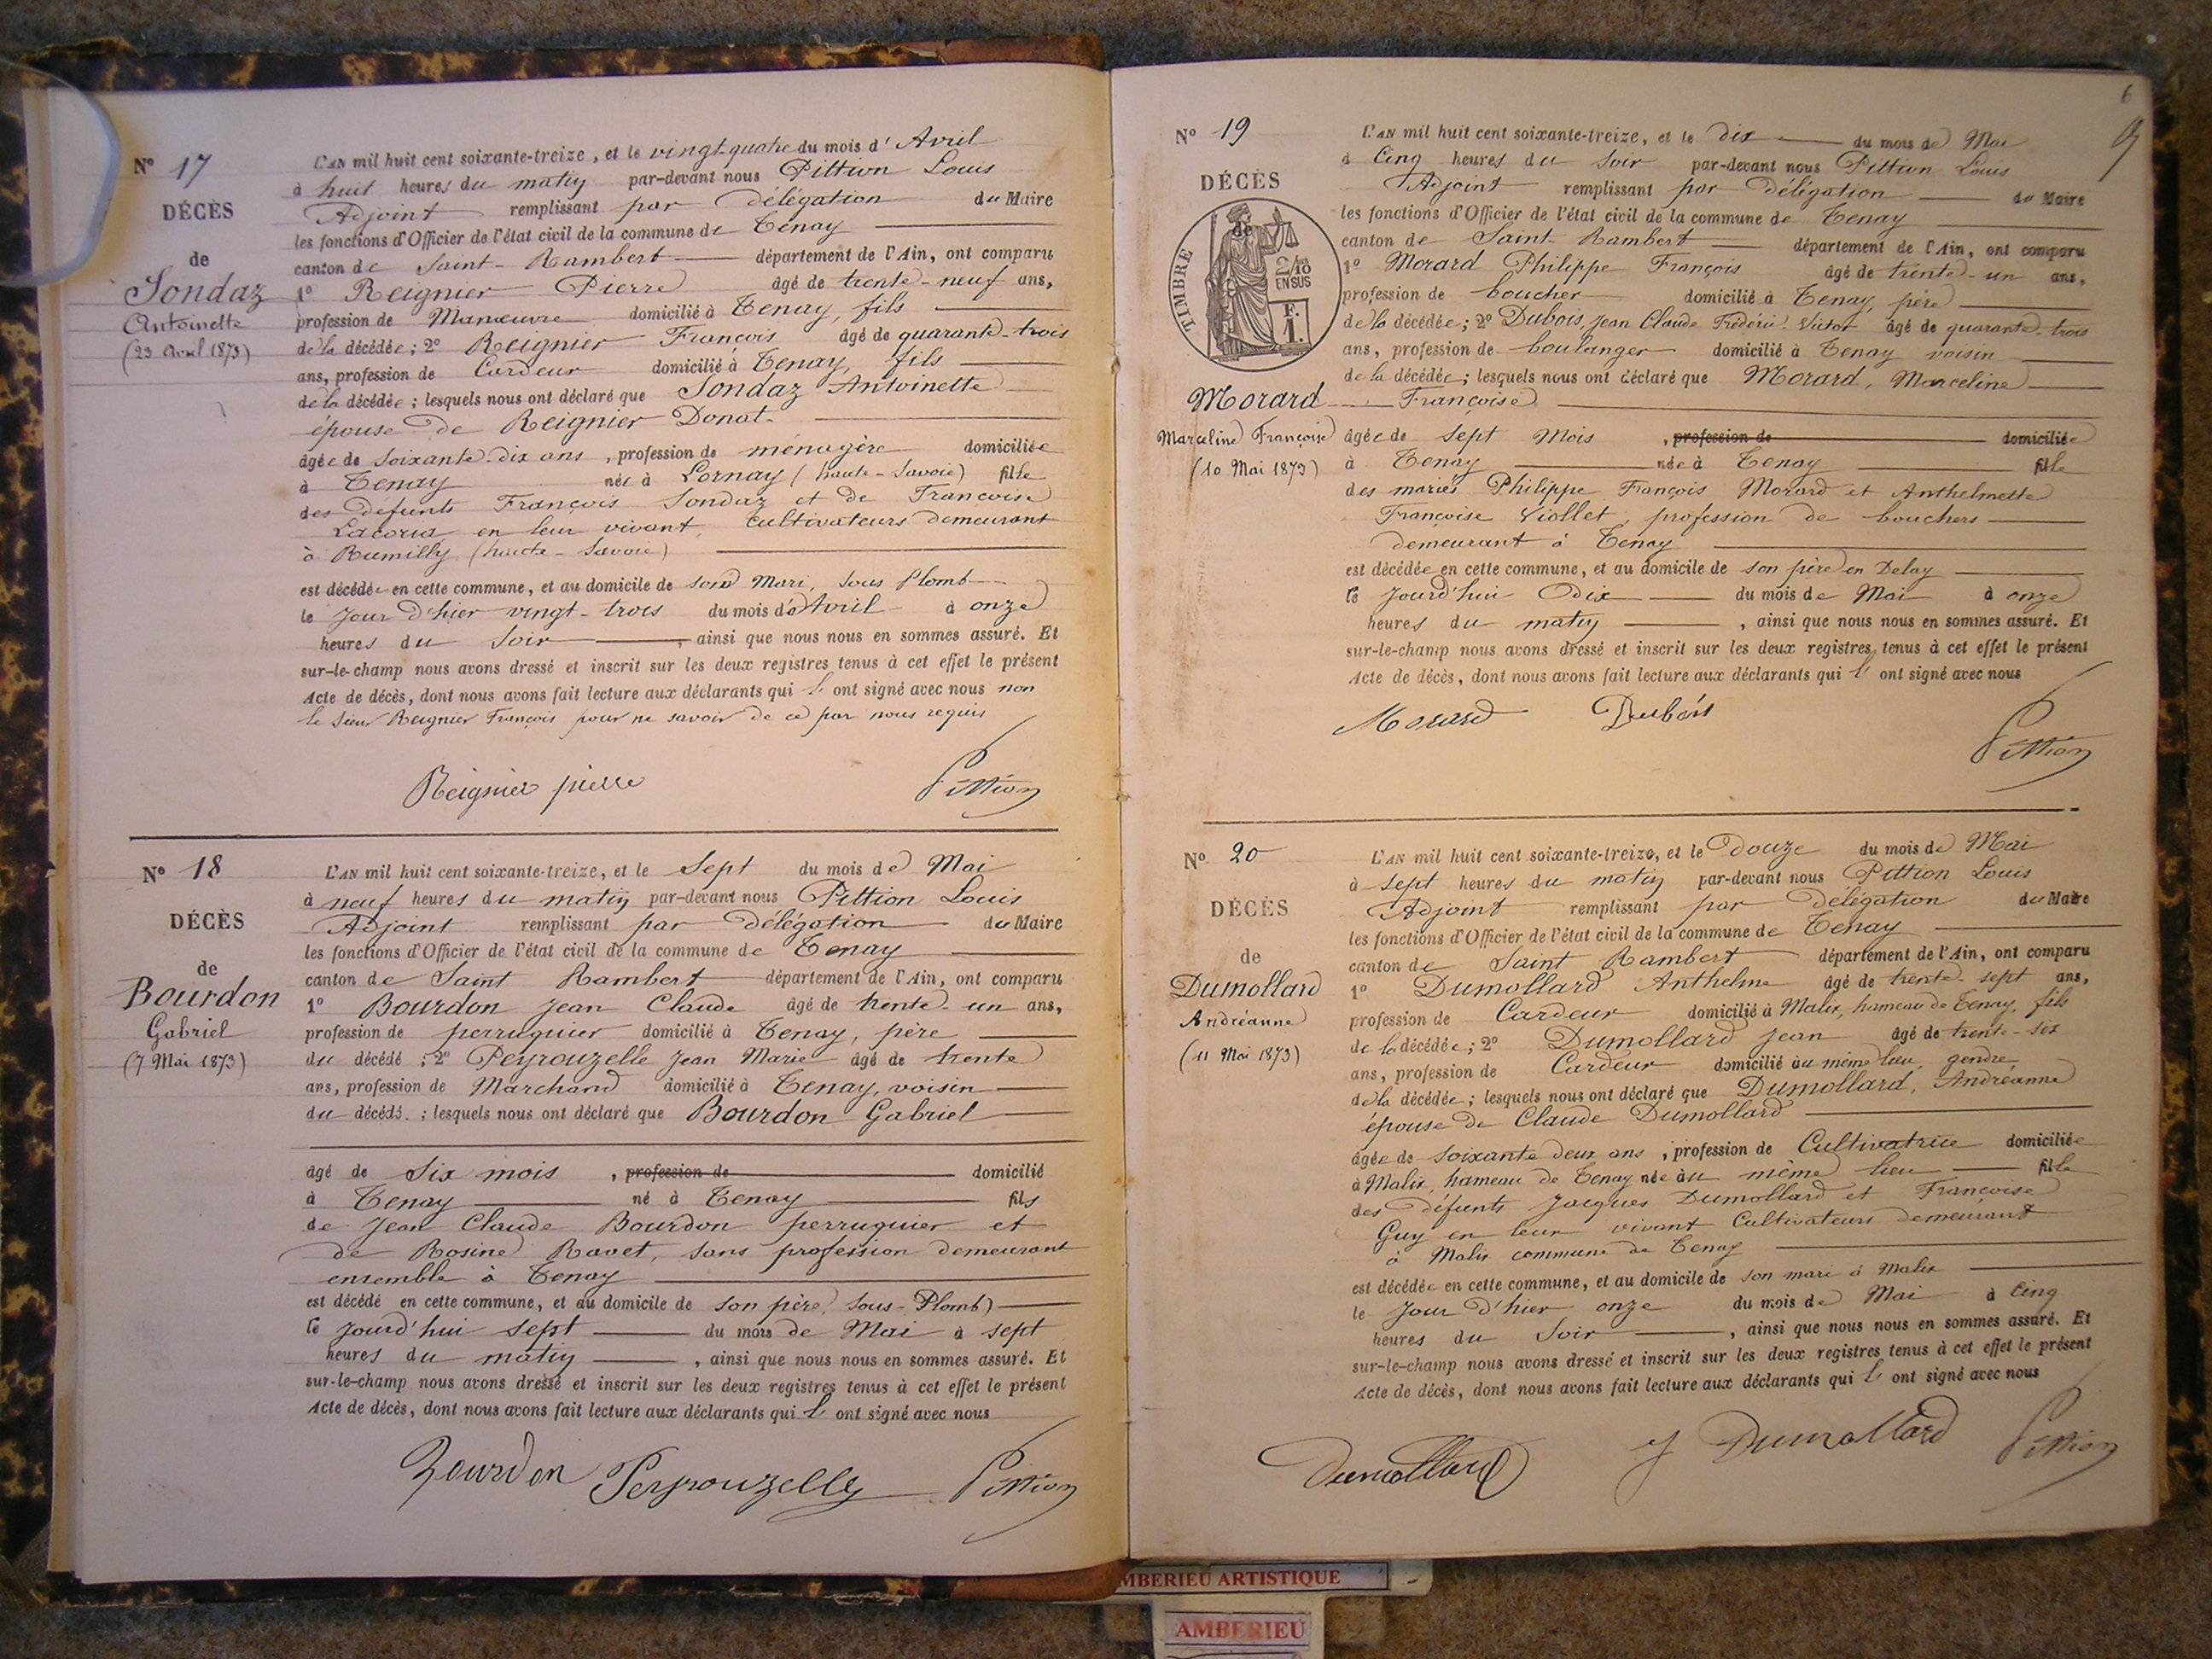 N° 17
DÉCÈS
de
Sondaz
Antoinette
(23 Avril 1873)
L'AN mil huit cent soixante-treize, et le vingt-quatre du mois d' Avril
à huit heures du matin par-devant nous Pittion Louis
Adjoint remplissant par délégation du Maire
les fonctions d'Officier de l'état civil de la commune de Tenay
canton de Saint-Rambert département de l'Ain, ont comparu
1° Reignier Pierre âgé de trente-neuf ans,
profession de Manœuvre domicilié à Tenay, fils
de la décédée; 2° Reignier François âgé de quarante-trois
ans, profession de Cardeur domicilié à Tenay, fils
de la décédée; lesquels nous ont déclaré que Sondaz Antoinette
épouse de Reignier Donat
âgée de soixante-dix ans, profession de ménagère domiciliée
à Tenay née à Lornay (haute-Savoie) fille
des défunts François Sondaz et de Françoise
en leur vivant, cultivateurs demeurant
à Rumilly (haute-Savoie)
est décédée en cette commune, et au domicile de son Mari, sous Plomb
le jour d'hier vingt-trois du mois d'Avril à onze
heures du soir, ainsi que nous nous en sommes assuré. Et
sur-le-champ nous avons dressé et inscrit sur les deux registres tenus à cet effet le présent
Acte de décès, dont nous avons fait lecture aux déclarants qui l' ont signé avec nous non
le sieur Reignier François pour ne savoir de ce par nous requis
Reignier pierre Pittion
N° 18
DÉCÈS
de
Bourdon
Gabriel
(7 Mai 1873)
L'AN mil huit cent soixante-treize, et le Sept du mois de Mai
à neuf heures du matin par-devant nous Pittion Louis
Adjoint remplissant par délégation du Maire
les fonctions d'Officier de l'état civil de la commune de Tenay
canton de Saint Rambert département de l'Ain, ont comparu
1° Bourdon Jean Claude âgé de trente-un ans,
profession de perruquier domicilié à Tenay, père
du décédé; 2° Peyrouzelle Jean Marie âgé de trente
ans, profession de Marchand domicilié à Tenay, voisin
du décédé; lesquels nous ont déclaré que Bourdon Gabriel
âgé de Six mois, profession de domicilié
à Tenay né à Tenay fils
de Jean Claude Bourdon perruquier et
de Rosine Ravet, sans profession demeurant
ensemble à Tenay
est décédé en cette commune, et au domicile de son père, sous-Plomb
le jourd'hui sept du mois de Mai à sept
heures du matin, ainsi que nous nous en sommes assuré. Et
sur-le-champ nous avons dressé et inscrit sur les deux registres tenus à cet effet le présent
Acte de décès, dont nous avons fait lecture aux déclarants qui l' ont signé avec nous
Bourdon Peyrouzelle Pittion
6
N° 19
DÉCÈS
de
TIMBRE
2/10 EN SUS
F. 1.
Morard
Marceline Françoise
(10 Mai 1873)
L'AN mil huit cent soixante-treize, et le dix du mois de Mai
à Cinq heures du soir par-devant nous Pittion Louis
Adjoint remplissant par délégation du Maire
les fonctions d'Officier de l'état civil de la commune de Tenay
canton de Saint-Rambert département de l'Ain, ont comparu
1° Morard Philippe François âgé de trente-un ans,
profession de boucher domicilié à Tenay, père
de la décédée; 2° Dubois, Jean Claude Frédéric Victor âgé de quarante-trois
ans, profession de boulanger domicilié à Tenay voisin
de la décédée; lesquels nous ont déclaré que Morard, Marceline
Françoise
âgée de sept Mois, profession de domiciliée
à Tenay née à Tenay fille
des mariés Philippe François Morard et Anthelmette
Françoise Viollet, profession de bouchers
demeurant à Tenay
est décédée en cette commune, et au domicile de son père en Delay
le jourd'hui Dix du mois de Mai à onze
heures du matin, ainsi que nous nous en sommes assuré. Et
sur-le-champ nous avons dressé et inscrit sur les deux registres tenus à cet effet le présent
Acte de décès, dont nous avons fait lecture aux déclarants qui l' ont signé avec nous
Morard Dubois
Pittion
N° 20
DÉCÈS
de
Dumollard
Andréanne
(11 Mai 1873)
L'AN mil huit cent soixante-treize, et le douze du mois de Mai
à sept heures du matin par-devant nous Pittion Louis
Adjoint remplissant par délégation du Maire
les fonctions d'Officier de l'état civil de la commune de Tenay
canton de Saint Rambert département de l'Ain, ont comparu
1° Dumollard Anthelme âgé de trente-sept ans,
profession de Cardeur domicilié à Malix, hameau de Tenay, fils
de la décédée; 2° Dumollard Jean âgé de trente-six
ans, profession de Cardeur domicilié au même lieu, gendre
de la décédée; lesquels nous ont déclaré que Dumollard, Andréanne
épouse de Claude Dumollard
âgée de soixante deux ans, profession de Cultivatrice domiciliée
à Malix, hameau de Tenay née au même lieu fille
des défunts Jacques Dumollard et Françoise
Guy en leur vivant Cultivateurs demeurant
à Malix commune de Tenay
est décédée en cette commune, et au domicile de son mari à Malix
le jour d'hier onze du mois de Mai à Cinq
heures du soir, ainsi que nous nous en sommes assuré. Et
sur-le-champ nous avons dressé et inscrit sur les deux registres tenus à cet effet le présent
Acte de décès, dont nous avons fait lecture aux déclarants qui l' ont signé avec nous
Dumollard J Dumollard Pittion
MBERIEU ARTISTIQUE
AMBERIEU